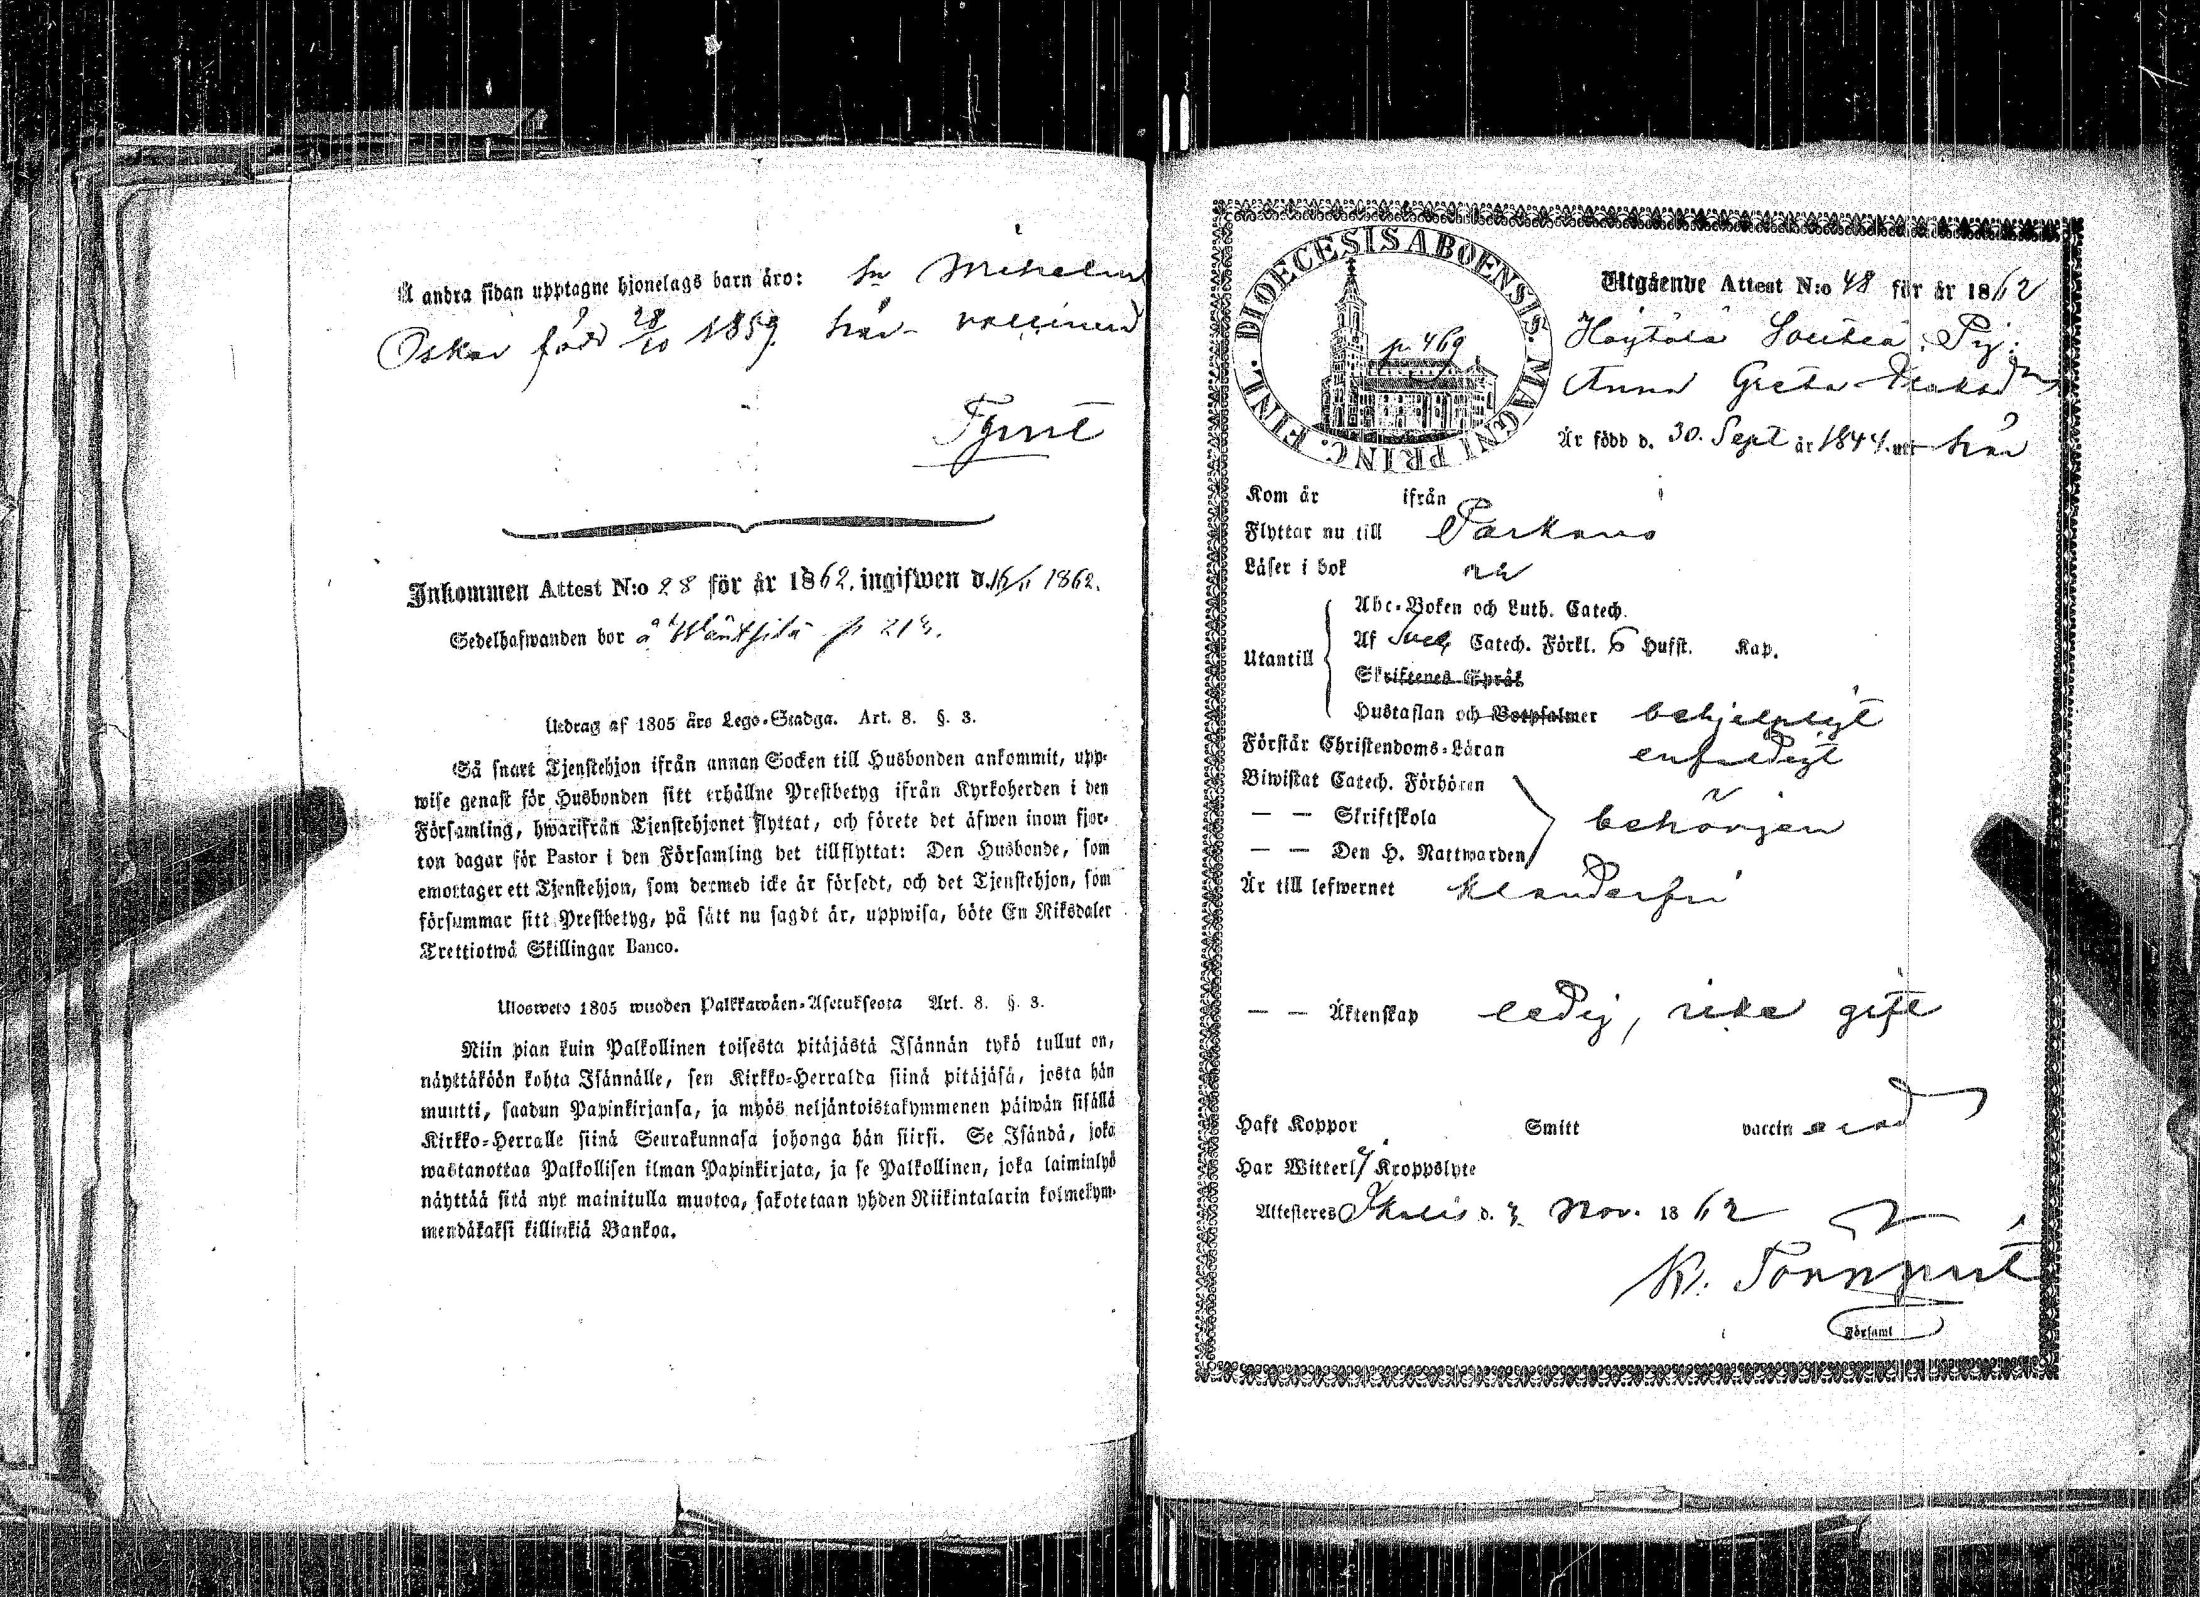 Å andra sidan upptagne hjonelags barn äro: Sn Wihelm
Oskar född 28/10 1859. här vaccinerad
Tgmt
Inkommen Attest N:o 28 för år 1862. ingifwen d. 16/11 1862.
Sedelhafwanden bor å Wäntsilä p 213.
Utdrag af 1805 års Lego-Stadga. Art. 8. §. 3.
Så snart Tjenstehjon ifrån annan Socken till Husbonden ankommit, upp-
wise genast för Husbonden sitt erhållne Prestbetyg ifrån Kyrkoherden i den
Församling, hwarifrån Tjenstehjonet flyttat, och förete det äfwen inom fjor-
ton dagar för Pastor i den Församling det tillflyttat: Den Husbonde, som
emottager ett Tjenstehjon, som dermed icke är försedt, och det Tjenstehjon, som
försummar sitt Prestbetyg, på sätt nu sagdt är, uppwisa, böte En Riksdaler
Trettiotwå Skillingar Banco.
Ulosweto 1805 wuoden Palkkawäen-Asetuksesta Art. 8. §. 3.
Niin pian kuin Palkollinen toisesta pitäjästä Isännän tykö tullut on,
näyttäköön kohta Isännälle, sen Kirkko-Herralda siinä pitäjäsä, josta hän
muutti, saadun Papinkirjansa, ja myös neljäntoistakymmenen päiwän sisällä
Kirkko-Herralle siinä Seurakunnasa johonga hän siirsi. Se Isändä, joka
wastanottaa Palkollisen ilman Papinkirjata, ja se Palkollinen, joka laiminlyö
näyttää sitä nyt mainitulla muotoa, sakotetaan yhden Riikintalarin kolmekym-
mendäkaksi killinkiä Bankoa.
DIOECESIS ABOENSIS. MAGNI PRINC. FINL.
p. 469
Utgående Attest N:o 48 för år 1862
Pig:
Anna Greta
Är född d. 30. Sept år 1844. uti här
Kom år ifrån
Flyttar nu till Parkano
Läser i bok
Utantill
Abc-Boken och Luth. Catech.
Af Sveb. Catech. Förkl. 6 Hufst. Kap.
Skriftenes Språk
Hustaflan och Botpsalmer behjelpligt
Förstår Christendoms-Läran enfaldigt
Biwistat Catech. Förhören
— — Skriftskola behörigen
— — Den H. Nattwarden
Är till lefwernet klanderfri
— — Äktenskap ledig, icke gift
Haft Koppor Smitt vaccinerad
Har Witterl. Kroppslyte
Attesteres Ikalis d. 3. Nov. 1862
K. Törnqvist
Församl